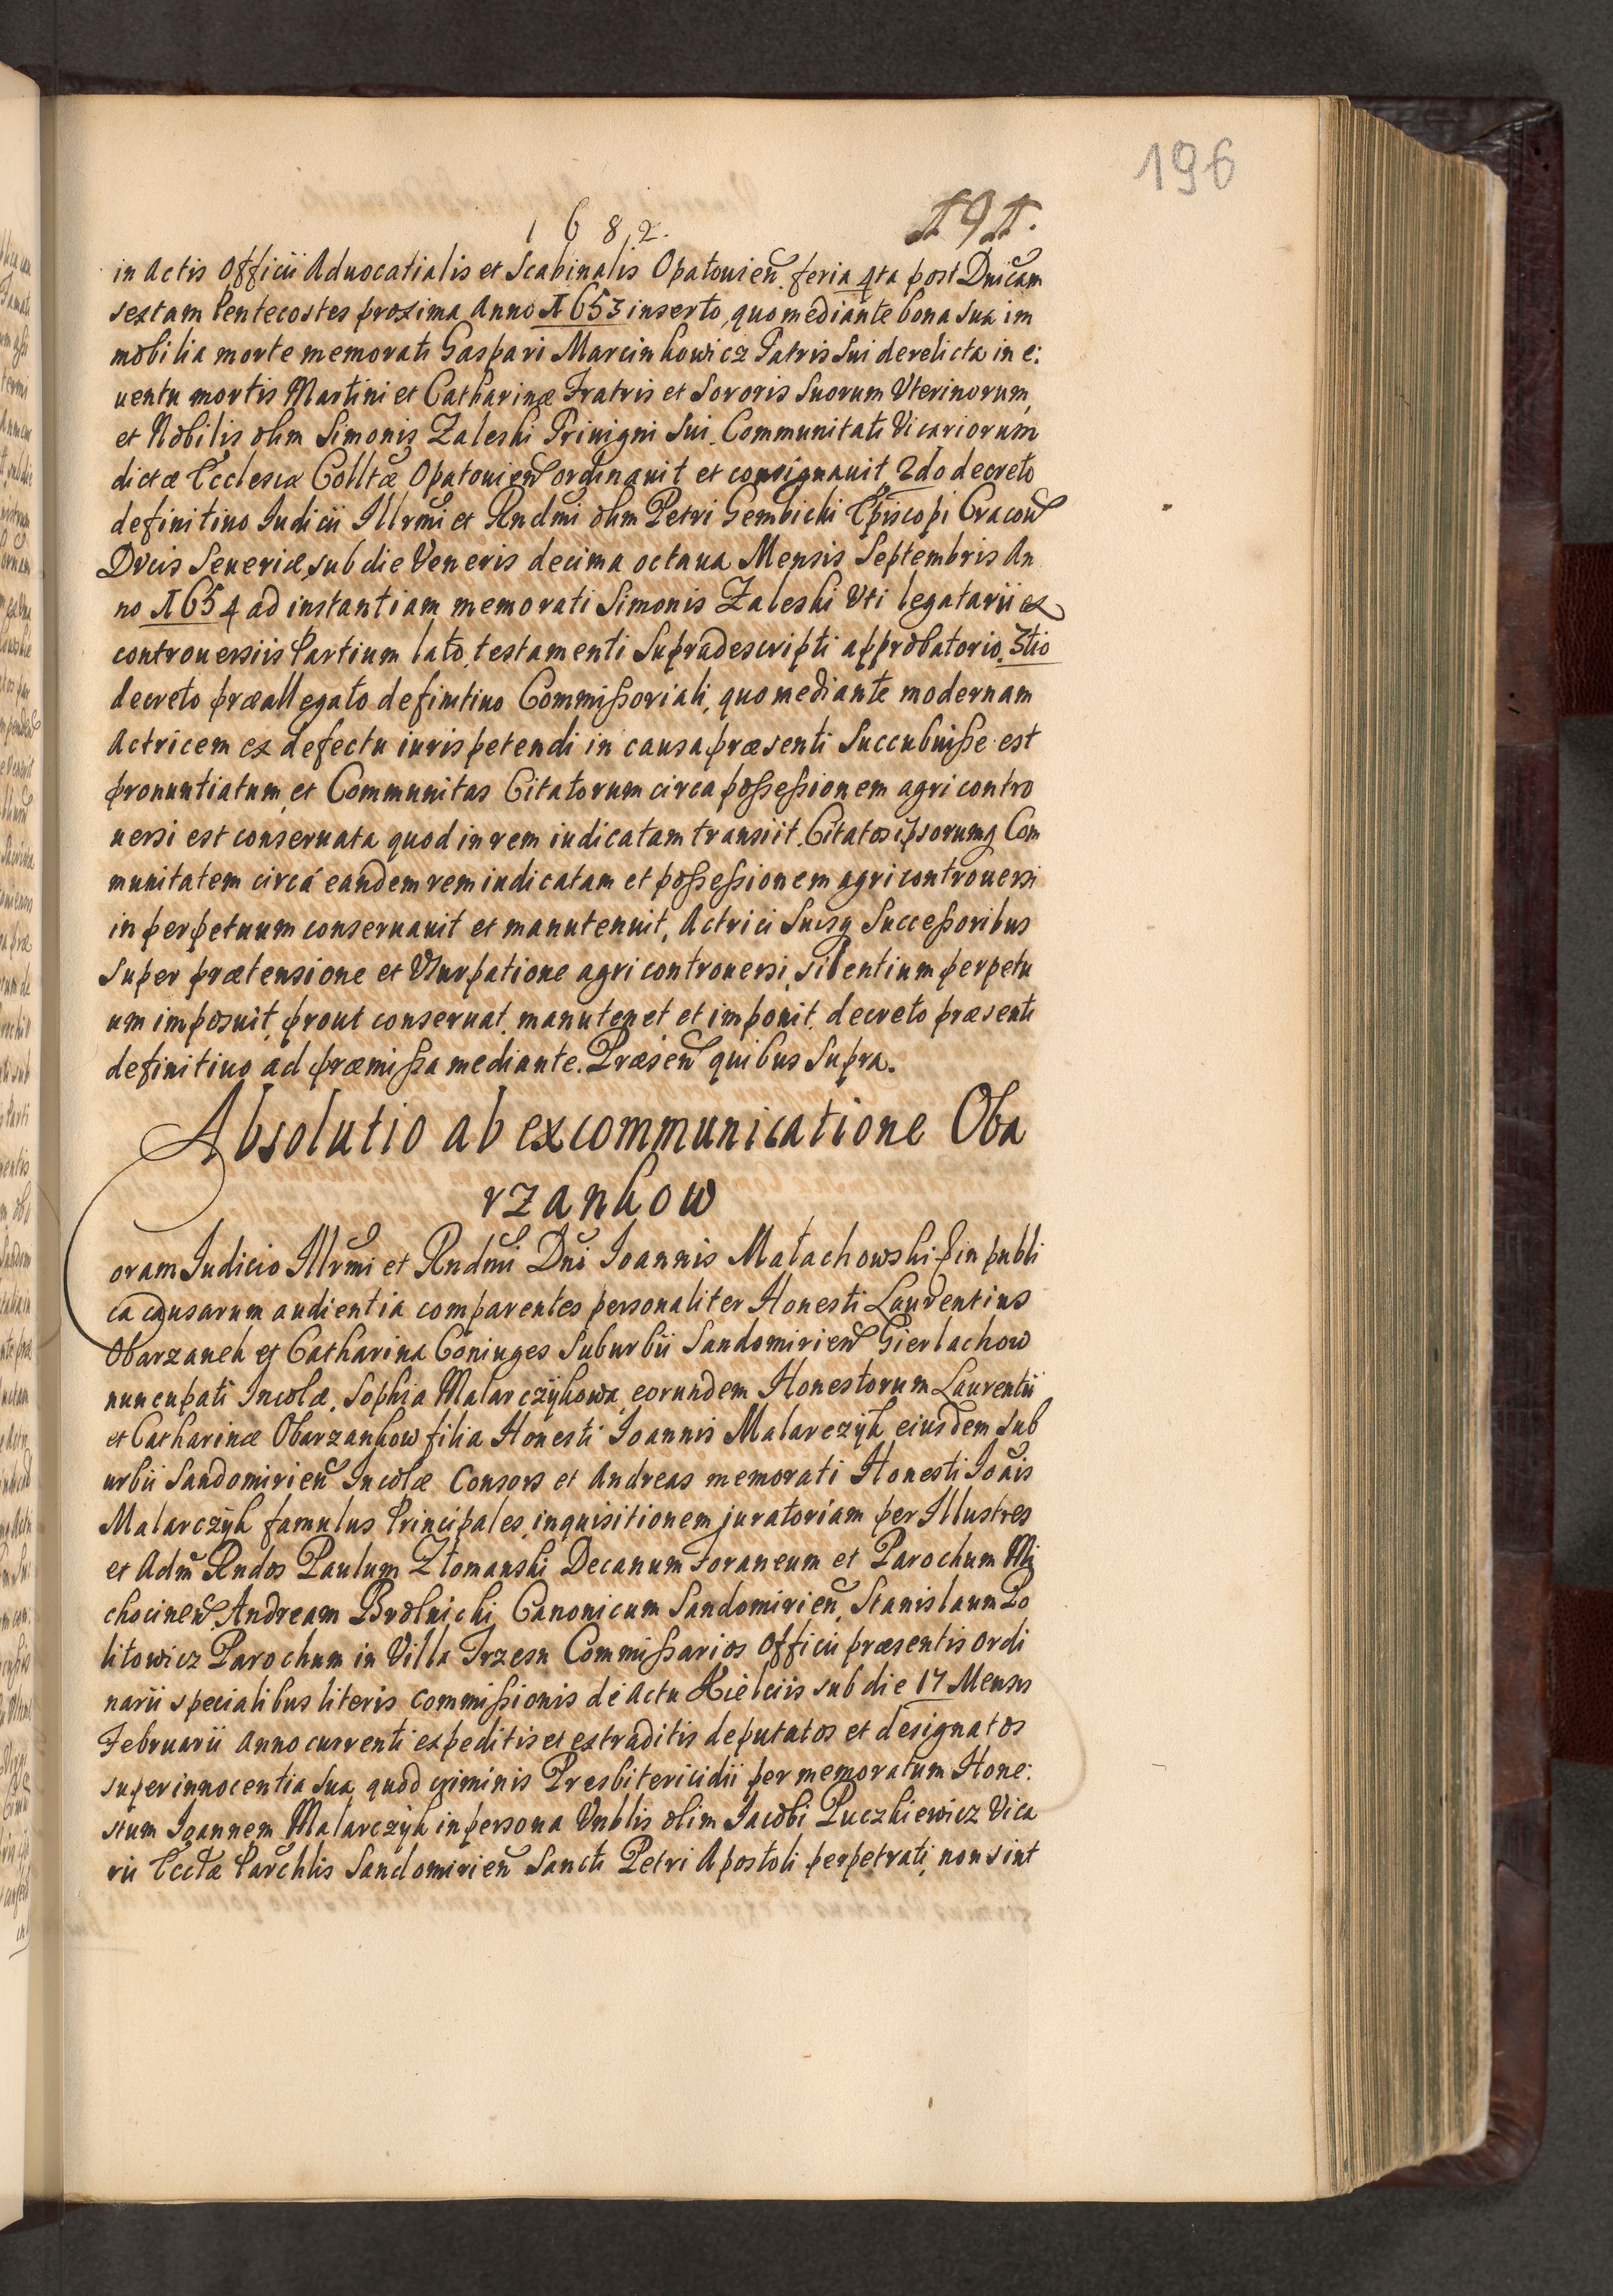 196
1682.
191.
in Actis Officii Aduocatialis et Scabinalis Opatouien̄. feria 4ta post Dnicam
sextam Pentecostes proxima Anno 1653 inserto, quo mediante bona sua im
mobilia morte memorati Gaspari Marcinkowicz Patris sui derelicta in e:
uentu mortis Martini et Catharinæ Fratris et Sororis suorum Vterinorum,
et Nobilis olim Simonis Zaleski Priuigni sui. Communitati Vicariorum
dictæ Ecclesiæ Colltæ Opatouien̄ ordinauit et consignauit, 2do decreto
definitiuo Iudicii Illrmi et Rndmi olim Petri Gembicki Episcopi Cracou̅
Ducis Seueriæ, sub die Veneris decima octaua Mensis Septembris An
no 1654 ad instantiam memorati Simonis Zaleski Vti legatarii ex
controuersiis Partium lato, testamenti supradescripti approbatorio. 3tio
decreto præallegato definitiuo Commißoriali, quo mediante modernam
Actricem ex defectu iuris petendi in causa præsenti succubuiße est
pronuntiatum, et Communitas Citatorum circa poßeßionem agri contro
uersi est conseruata quod in rem iudicatam transiit. Citatos ipsorumq Com
munitatem circa eandem rem iudicatam et poßeßionem agri controuersi
in perpetuum conseruauit et manutenuit, Actrici suisq Succeßoribus
super prætensione et Vsurpatione agri controuersi, silentium perpetu
um imposuit, prout conseruat, manutenet et imponit, decreto præsenti
definitiuo ad præmißa mediante. Præsen̄ quibus supra.
Absolutio ab excommunicatione Oba
rzankow
Coram Iudicio Illrmi et Rndmi Dni Ioannis Małachowski p in publi
ca causarum audientia comparentes personaliter Honesti Laurentius
Obarzanek et Catharina Coniuges Suburbii Sandomirien̄ Gierlachow
nuncupati Incolæ, Sophia Malarczykowa, eorundem Honestorum Laurentii
et Catharinæ Obarzankow filia Honesti Ioannis Malarczyk eiusdem sub
urbii Sandomirien̄ Incolæ Consors et Andreas memorati Honesti Ioānis
Malarczyk famulus Principales, inquisitionem juratoriam per Illustres
et Adm Rndos Paulum Złomanski Decanum foraneum et Parochum Mi
chocinen̄, Andream Brolnicki Canonicum Sandomirien̄, Stanislaum Lo
litowicz Parochum in Villa Trzesn Commißarios Officii præsentis ordi
narii specialibus literis commißionis de Actu Kielciis sub die 17 Mensis
Februarii Anno currenti expeditis et extraditis deputatos et designatos
super innocentia sua, quod criminis Presbitericidii per memoratum Hone:
stum Ioannem Malarczyk in persona Vnblis olim Iacobi Puczkiewicz Vica
rii Ecctæ Parchlis Sandomirien̄ Sancti Petri Apostoli perpetrati, non sint